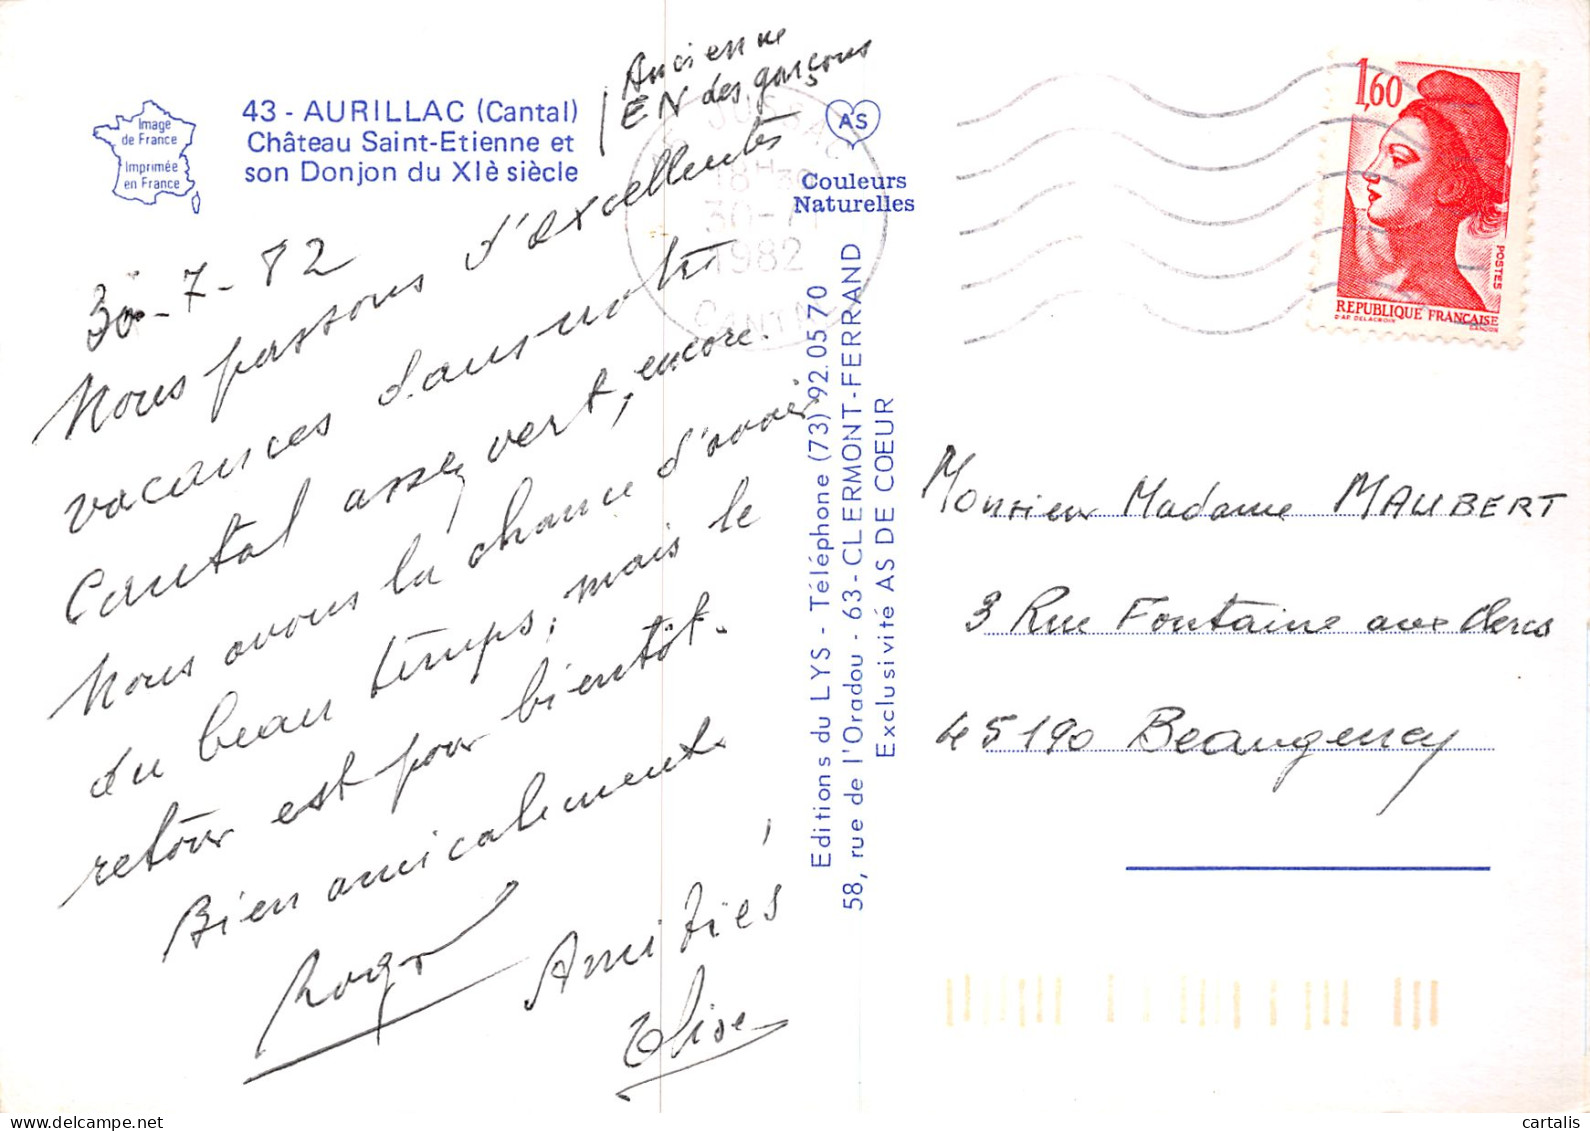 Image
de France
Imprimée
en France
43 - AURILLAC (Cantal)
Château Saint-Etienne et
son Donjon du XIè siècle
Ancienne
EN des garçons
30-7-82
Nous passons d'excellentes
vacances dans notre
Cantal assez vert, encore.
Nous avons la chance d'avoir
du beau temps, mais le
retour est pour bientôt.
Bien amicalement
Roger
Amitiés
Elise
JUSSAC
18H30
30-7
1982
CANTAL
AS
Couleurs
Naturelles
Editions du LYS - Téléphone (73) 92.05.70
58, rue de l'Oradou - 63-CLERMONT-FERRAND
Exclusivité AS DE COEUR
1,60
POSTES
REPUBLIQUE FRANÇAISE
D'AP. DELACROIX GANDON
Monsieur Madame MAUBERT
3 Rue Fontaine aux Clercs
45190 Beaugency
cartalis